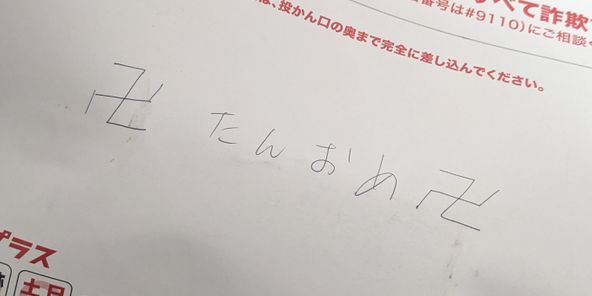 べて詐欺
番号は#9110)にご相談く
は、投かん口の奥まで完全に差し込んでください。
卍 たんおめ 卍
プラス
土日